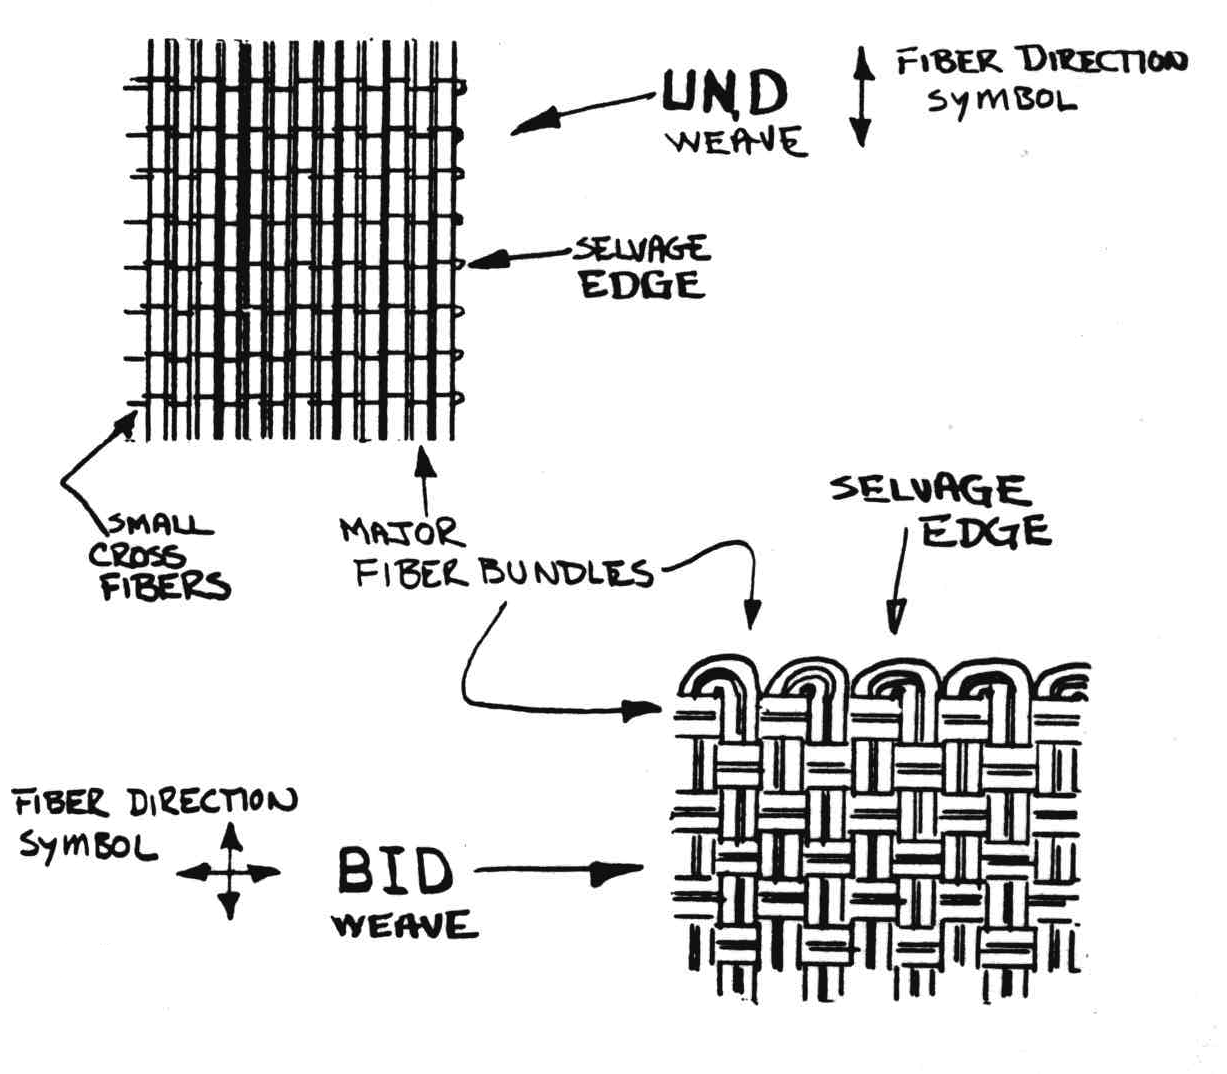 UND
WEAVE
FIBER DIRECTION
SYMBOL
SELVAGE
EDGE
SMALL
CROSS
FIBERS
MAJOR
FIBER BUNDLES
SELVAGE
EDGE
FIBER DIRECTION
SYMBOL
BID
WEAVE